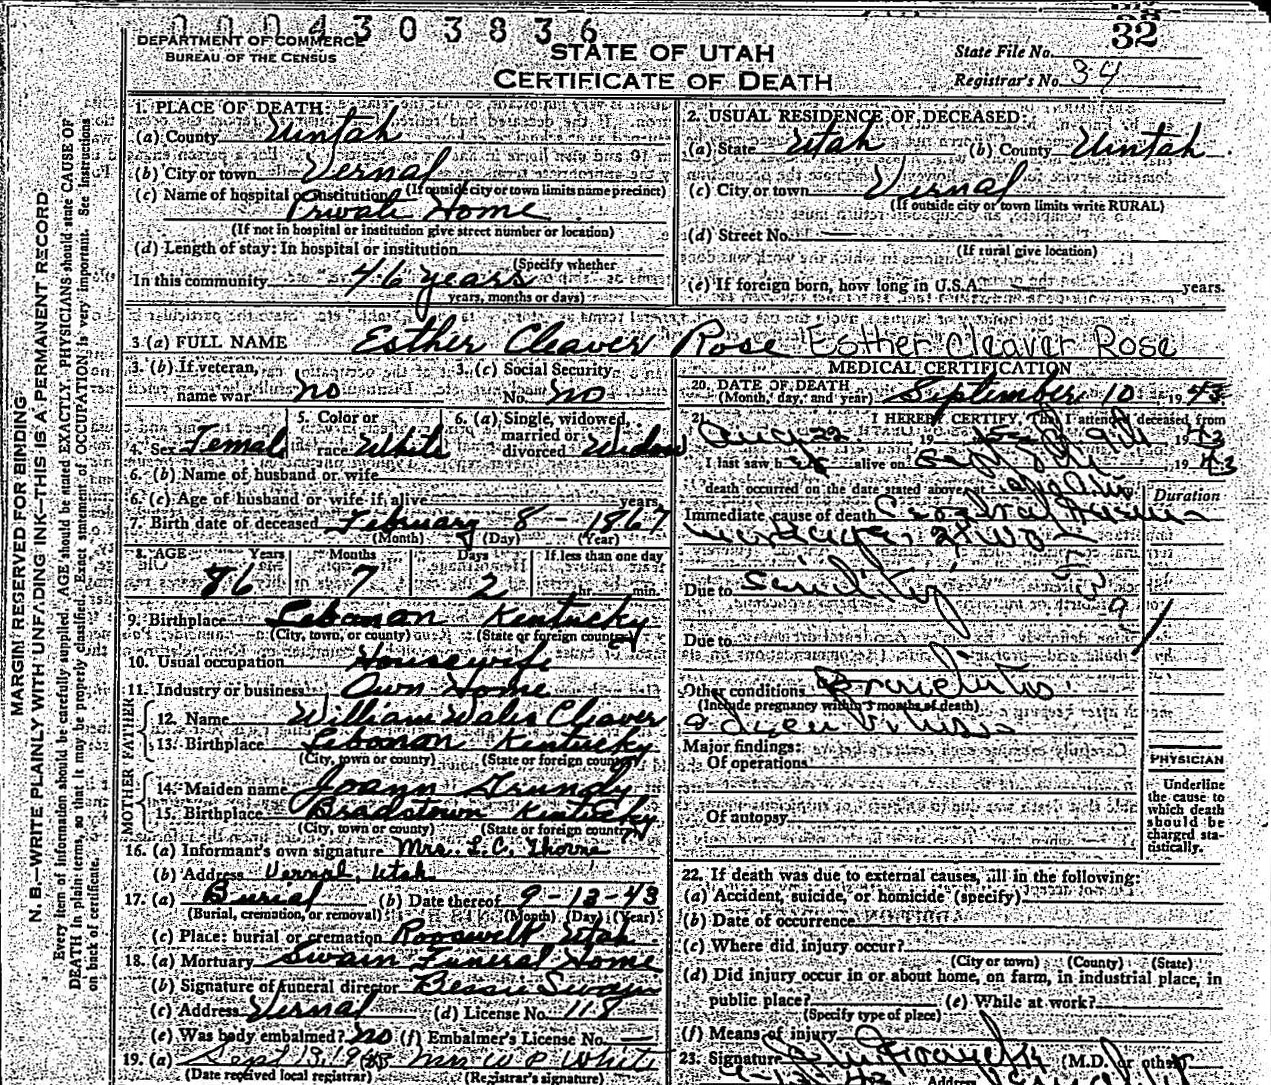 0004303836
DEPARTMENT OF COMMERCE
BUREAU OF THE CENSUS
STATE OF UTAH
CERTIFICATE OF DEATH
32
State File No.
Registrar's No. 34
MARGIN RESERVED FOR BINDING
N. B.—WRITE PLAINLY WITH UNFADING INK—THIS IS A PERMANENT RECORD
Every item of information should be carefully supplied. AGE should be stated EXACTLY. PHYSICIANS should state CAUSE OF
DEATH in plain terms, so that it may be properly classified. Exact statement of OCCUPATION is very important. See Instructions
on back of certificate.
1. PLACE OF DEATH:
(a) County Uintah
(b) City or town Vernal
(If outside city or town limits name precinct)
(c) Name of hospital or institution
Private Home
(If not in hospital or institution give street number or location)
(d) Length of stay: In hospital or institution
(Specify whether
In this community 46 years
years, months or days)
2. USUAL RESIDENCE OF DECEASED:
(a) State Utah (b) County Uintah
(c) City or town Vernal
(If outside city or town limits write RURAL)
(d) Street No.
(If rural give location)
(e) If foreign born, how long in U.S.A. years.
3 (a) FULL NAME Esther Cleaver Rose Esther Cleaver Rose
3. (b) If veteran, name war no
3. (c) Social Security No. no
4. Sex Female
5. Color or race White
6. (a) Single, widowed, married or divorced Widow
6. (b) Name of husband or wife
6. (c) Age of husband or wife if alive years
7. Birth date of deceased February 8 - 1867
(Month) (Day) (Year)
8. AGE Years Months Days If less than one day
86 7 2 hr. min.
9. Birthplace Lebonon Kentucky
(City, town, or county) (State or foreign country)
10. Usual occupation Housewife
11. Industry or business Own Home
FATHER
12. Name William Wales Cleaver
13. Birthplace Lebonon Kentucky
(City, town or county) (State or foreign country)
MOTHER
14. Maiden name Joann Grundy
15. Birthplace Bradstown Kentucky
(City, town or county) (State or foreign country)
16. (a) Informant's own signature Mrs. L.C. Thorne
(b) Address Vernal, Utah
17. (a) Burial (b) Date thereof 9-13-43
(Burial, cremation, or removal) (Month) (Day) (Year)
(c) Place: burial or cremation Roosevelt Utah
18. (a) Mortuary Swain Funeral Home
(b) Signature of funeral director Bessie Swain
(c) Address Vernal (d) License No. 118
(e) Was body embalmed? no (f) Embalmer's License No.
19. (a) Sept 13, 1943 (b) Mrs W P White
(Date received local registrar) (Registrar's signature)
MEDICAL CERTIFICATION
20. DATE OF DEATH September 10 1943
(Month, day, and year)
21. I HEREBY CERTIFY, That I attended deceased from
Aug 22 19 Sept 9th 1943
I last saw her alive on , 1943
death occurred on the date stated above at
Duration
Immediate cause of death Cerebral
Due to senility
Due to
Other conditions Bronchitis
(Include pregnancy within 3 months of death)
Major findings:
Of operations
Of autopsy
PHYSICIAN
Underline
the cause to
which death
should be
charged sta-
tistically.
22. If death was due to external causes, fill in the following:
(a) Accident, suicide, or homicide (specify)
(b) Date of occurrence
(c) Where did injury occur?
(City or town) (County) (State)
(d) Did injury occur in or about home, on farm, in industrial place, in
public place? (e) While at work?
(Specify type of place)
(f) Means of injury
23. Signature (M.D. or other)